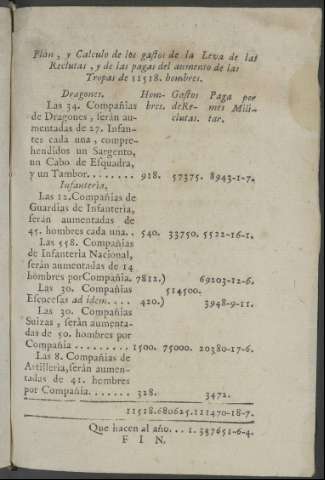 Plan, y Calculo de los gastos de la Leva de las
Reclutas, y de las pagas del aumento de las
Tropas de 11518. hombres.
Dragones. Hom- Gastos Paga por
Las 34. Compañias bres. deRe- mes Mili-
de Dragones, serán au- clutas. tar.
mentadas de 27. Infan-
tes cada una, compre-
hendidos un Sargento,
un Cabo de Esquadra,
y un Tambor........ 918. 57375. 8943-1-7.
Infanteria.
Las 12.Compañias de
Guardias de Infanteria,
serán aumentadas de
45. hombres cada una.. 540. 33750. 5522-16-1.
Las 558. Compañias
de Infanteria Nacional,
serán aumentadas de 14
hombres porCompañia. 7812.) 69203-12-6.
Las 30. Compañias 514500.
Escocesas ad idem.... 420.) 3948-9-11.
Las 30. Compañias
Suizas, serán aumenta-
das de 50. hombres por
Compañia ......... 1500. 75000. 20380-17-6.
Las 8. Compañias de
Artilleria,serán aumen-
tadas de 41. hombres
por Compañia....... 328. 3472.
11518.680625.111470-18-7.
Que hacen al año... 1.337651-6-4.
FIN.